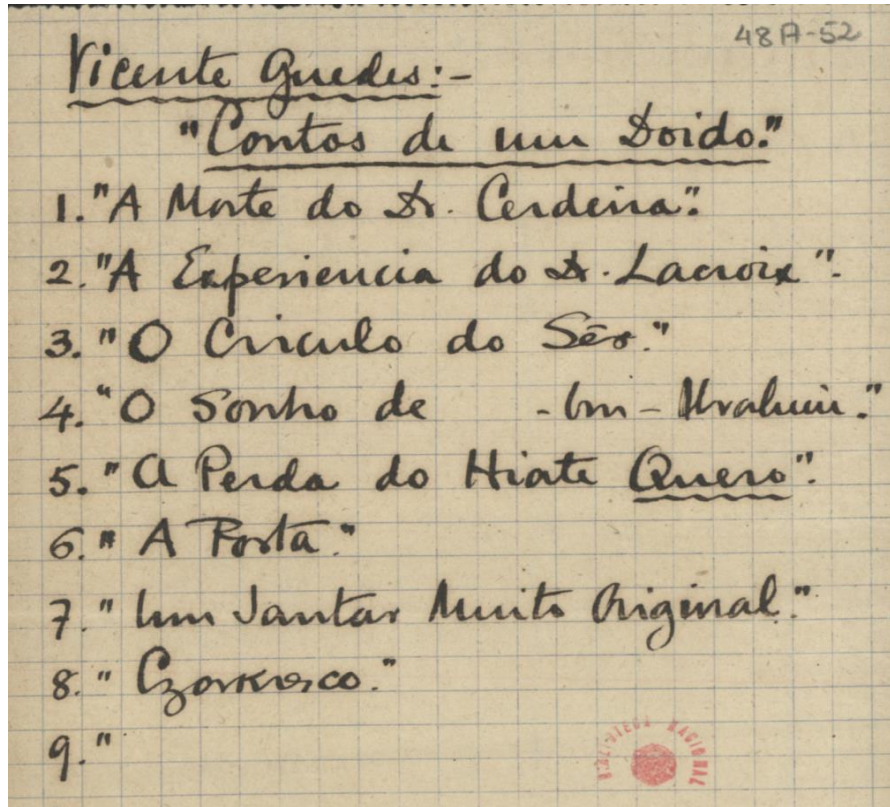 48A-52
Vicente Guedes:-
"Contos de um Doido."
1. "A Morte do Dr. Cerdeira".
2. "A Experiencia do Dr. Lacroix".
3. "O Circulo do Sêr."
4. "O Sonho de -bm-
5. "A Perda do Hiate Quero".
6. "A Porta."
7. "Um Jantar Muito Original."
8. "Czarkresco."
9. "
BIBLIOTECA NACIONAL